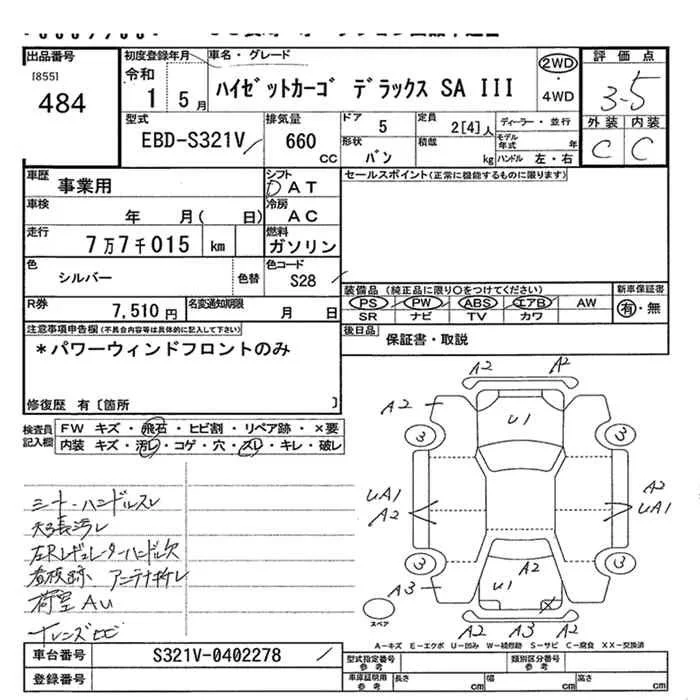 出品番号
[855]
484
初度登録年月
令和
1 5月
車名・グレード
ハイゼットカーゴ デラックス SA III
2WD
・
4WD
評価点
3.5
外装 内装
C C
型式
EBD-S321V
排気量
660
CC
ドア
5
定員
2[4]人
ディーラー・並行
形状
バン
積載
kg
モデル年式 年
ハンドル 左・右
車歴
事業用
シフト
DAT
セールスポイント(正常に機能するものに限ります)
車検
年 月( 日)
冷房
AC
走行
7万7千015 km
燃料
ガソリン
色
シルバー
色替
色コード
S28
装備品(純正品に限り○をつけてください)
新車保証書
PS PW ABS エアB AW
SR ナビ TV カワ
有・無
R券
7,510円
名変通知期限
月 日
後日品
保証書・取説
注意事項申告欄(不具合内容等は具体的に記入して下さい)
*パワーウィンドフロントのみ
修復歴 有〔箇所 〕
検査員記入欄
FW キズ・飛石・ヒビ割・リペア跡・×要
内装 キズ・汚レ・コゲ・穴・スレ・キレ・破レ
シート・ハンドルスレ
天張汚レ
左Rレギュレーターハンドル欠
看板跡 アンテナ折レ
荷室 AU
A2 A2
A2
U1
3 3
UA1
A2
A2
UA1
3 3
A2
A3
U1
A2 A3 A2
スペア
A-キズ E-エクボ U-凹み W-補修跡 S-サビ C-腐食 XX-交換済
車台番号
S321V-0402278
登録番号
型式指定番号
参考
類別区分番号
参考
車庫証明用
参考
長さ cm
幅 cm
高さ cm